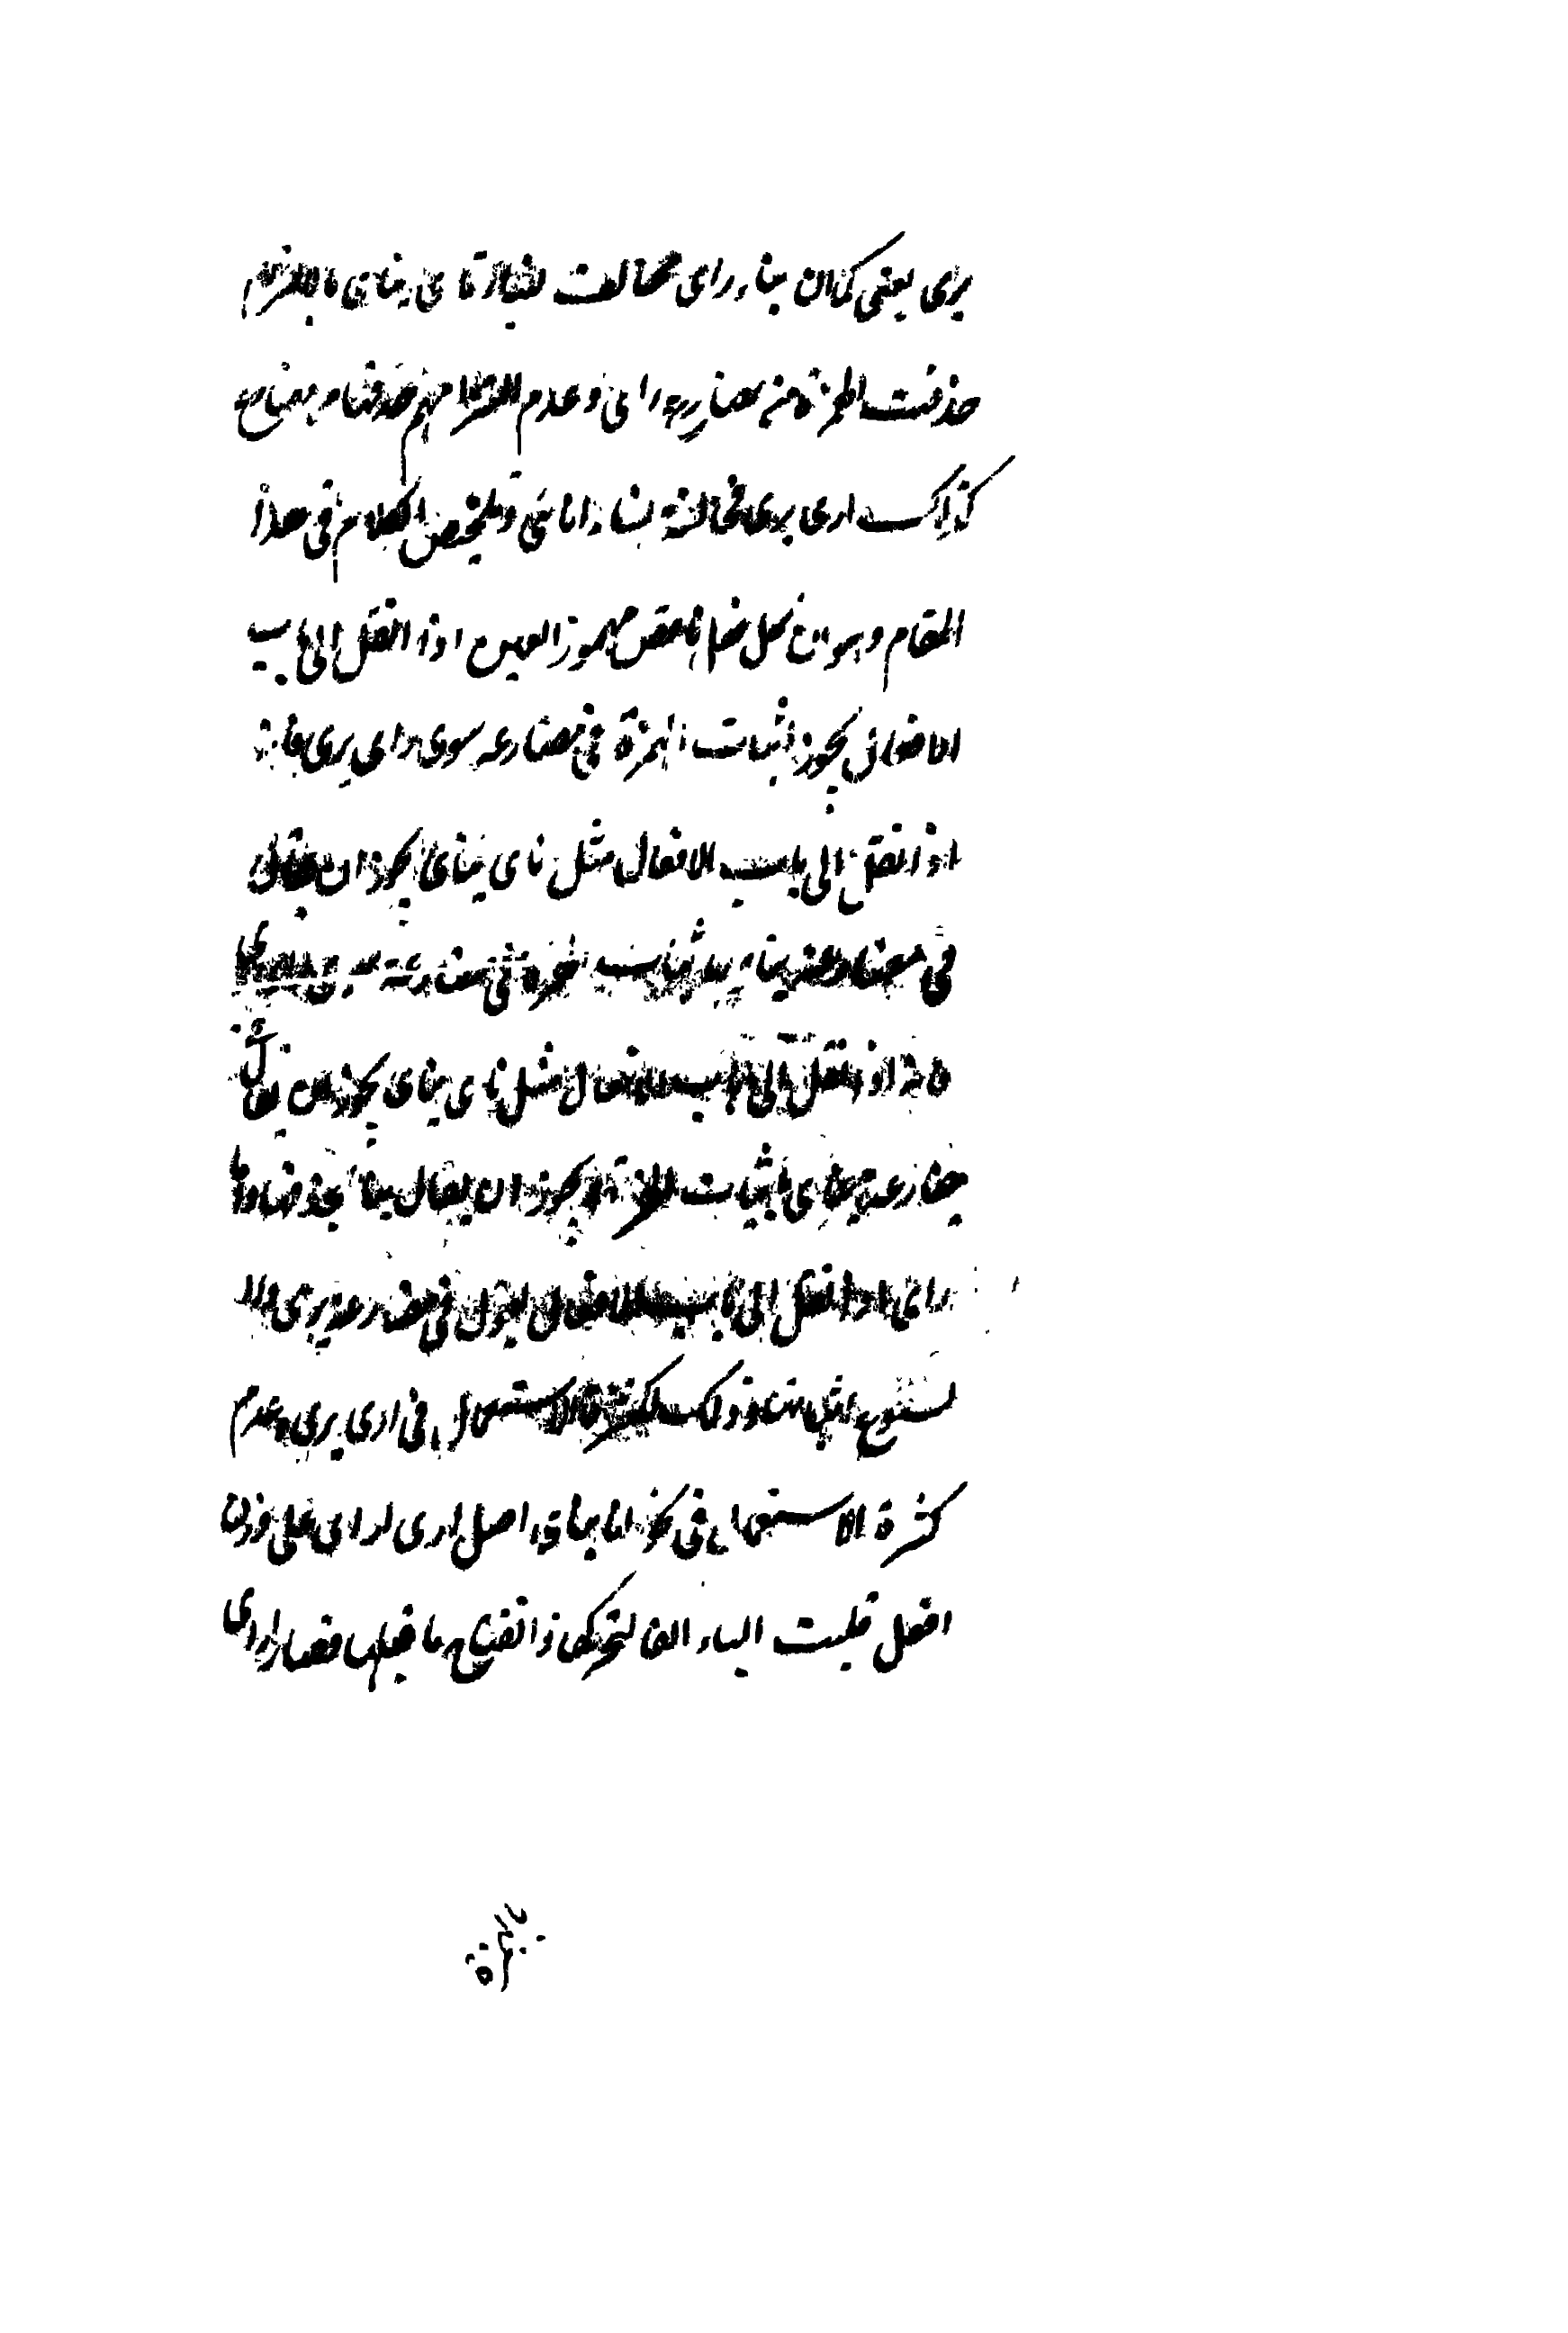 يرى يعنى كما ان بناء راى مخالف لبناء ناى يناى بالتزام
حذفت الهمزة من مضارع راى وعدم التزامهم حذفها من مضارع
كذلك ارى يرى مخالفة بناء اناى وتلخيص الكلام فى هذا
المقام وهو ان كل فعل ناقص مهموز العين اذا انتقل الى باب
الافعال يجوز اثبات الهمزة فى مضارعه سوى راى يرى فانه
اذا انتقل الى باب الافعال مثل ناى يناى يجوز ان يقال
فى مضارعه باثبات الهمزة فى مضارعه سوى
فانه اذا انتقل الى باب الافعال مثل ناى يناى يجوز ان يقال
مضارعه يناى باثبات الهمزة ويجوز ان يقال بحذفها واما
راى اذا انتقل الى باب الافعال يقول فى مضارعه يرى ولا
وذلك لكثرة الاستعمال فى ارى يرى وعدم
كثرة الاستعمال فى نحو اصل ارى اراى على وزن
افعل قلبت الياء الفا لتحركها وانفتاح ما قبلها فصار اراى